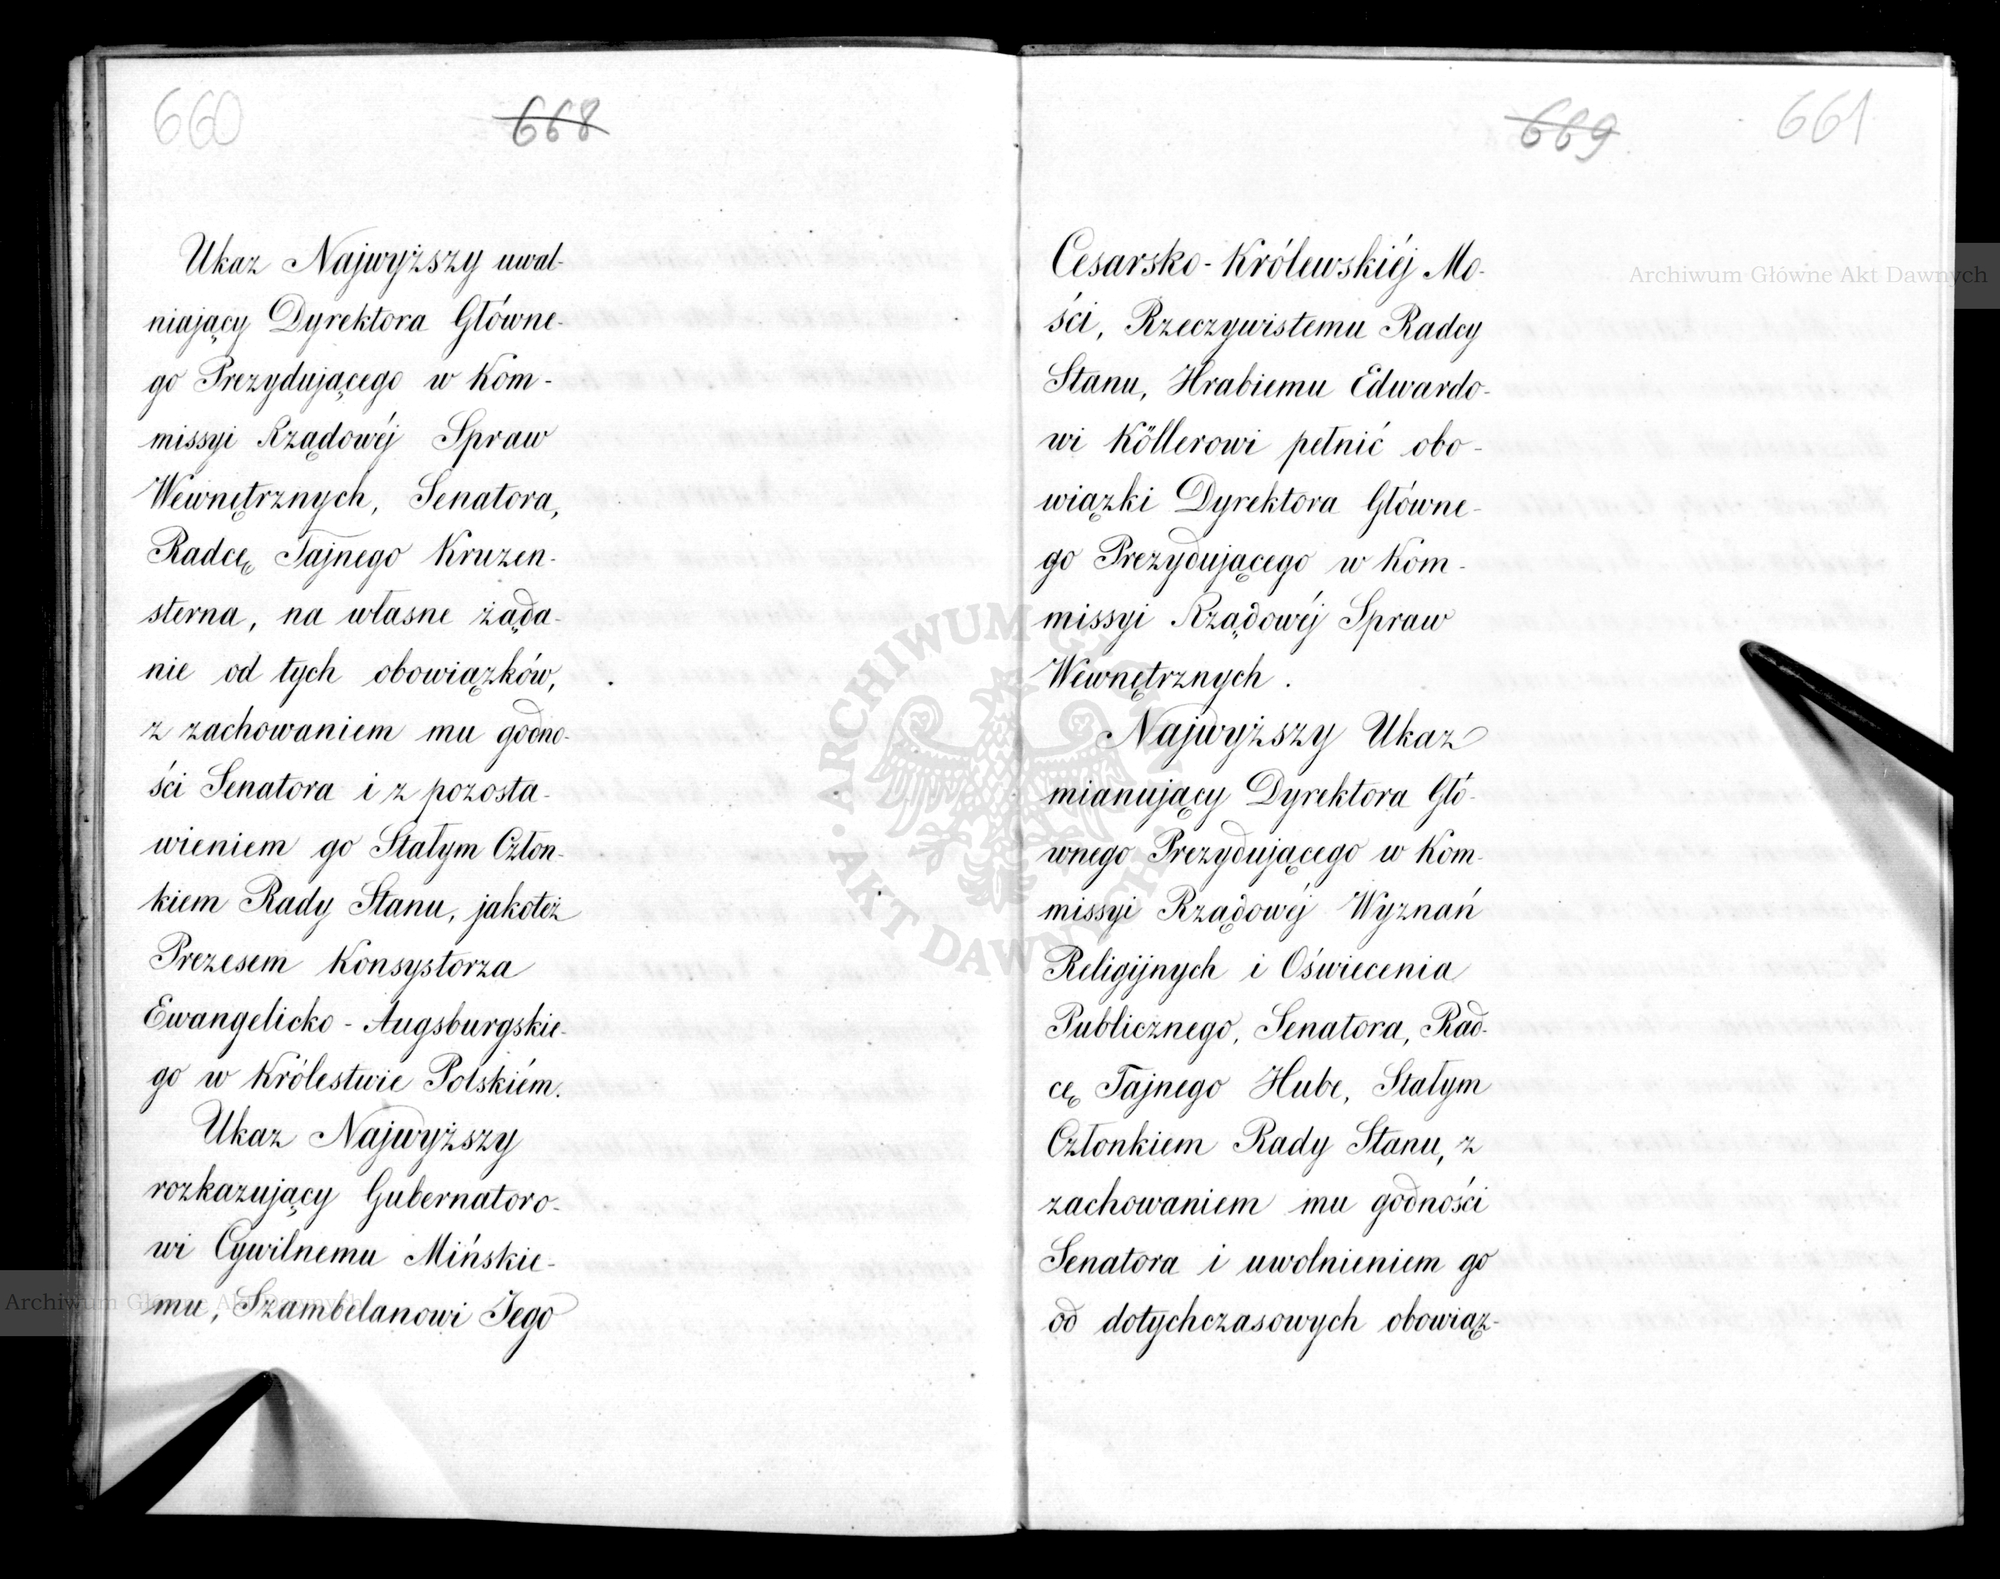 660
668
Ukaz Najwyższy uwal-
niający Dyrektora Główne-
go Prezydującego w Kom-
missyi Rządowéj Spraw
Wewnętrznych, Senatora,
Radcę Tajnego Kruzen-
sterna, na własne żąda-
nie od tych obowiązków,
z zachowaniem mu godno-
ści Senatora i z pozosta-
wieniem go Stałym Człon-
kiem Rady Stanu, jakoteż
Prezesem Konsystorza
Ewangelicko-Augsburgskie-
go w Królestwie Polskiém.
Ukaz Najwyższy
rozkazujący Gubernatoro-
wi Cywilnemu Mińskie-
mu, Szambelanowi Jego
669
661
Cesarsko-Królewskiéj Mo-
ści, Rzeczywistemu Radcy
Stanu, Hrabiemu Edwardo-
wi Köllerowi pełnić obo-
wiązki Dyrektora Główne-
go Prezydującego w Kom-
missyi Rządowéj Spraw
Wewnętrznych.
Najwyższy Ukaz
mianujący Dyrektora Głó-
wnego Prezydującego w Kom-
missyi Rządowéj Wyznań
Religijnych i Oświecenia
Publicznego, Senatora, Rad-
cę Tajnego Hube, Stałym
Członkiem Rady Stanu, z
zachowaniem mu godności
Senatora i uwolnieniem go
od dotychczasowych obowiąz-
Archiwum Główne Akt Dawnych
Archiwum Główne Akt Dawnych
ARCHIWUM GŁÓWNE AKT DAWNYCH